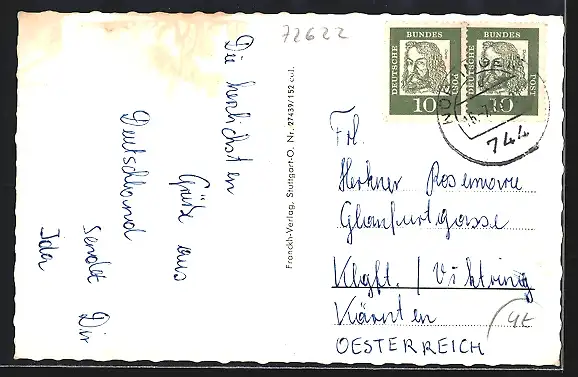 72622
Die herzlichsten
Grüße aus
Deutschland
sendet Dir
Ida
Franckh-Verlag, Stuttgart-O. Nr. 27439/152 col.
DEUTSCHE BUNDES POST
10
DEUTSCHE BUNDES POST
10
744
Frl.
Herkner Rosemarie
Glanfurtgasse
Klgft. / Viktring
Kärnten
OESTERREICH